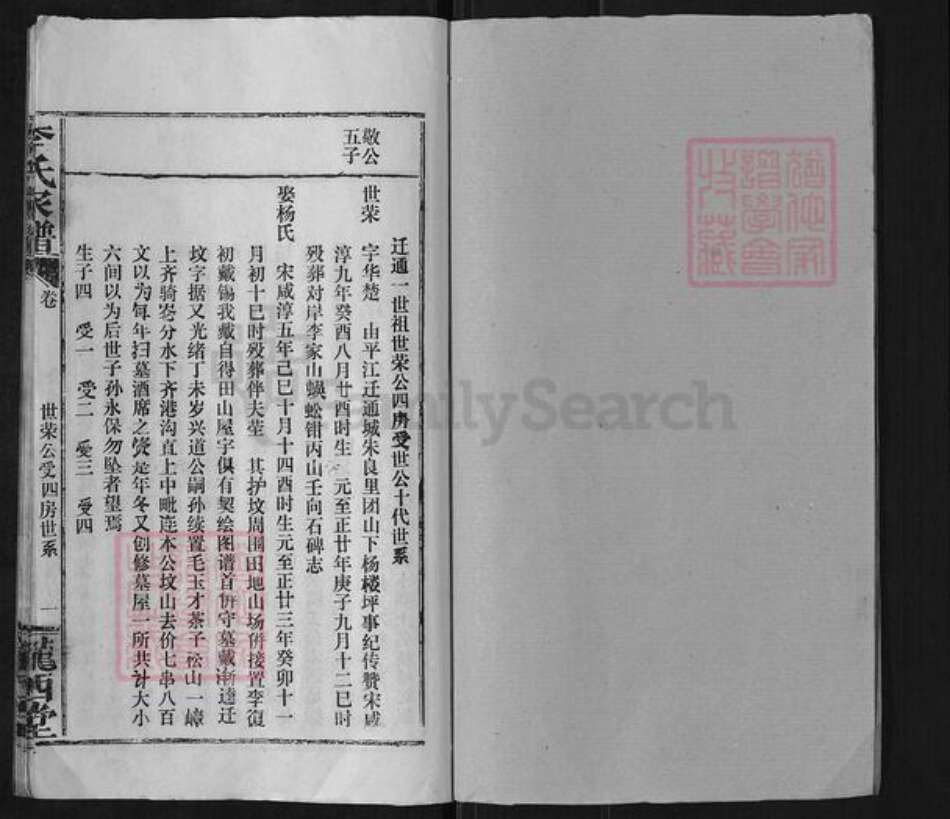 敬公
五子
迁通一世祖世荣公四房受世公十代世系
世荣 字华楚 由平江迁通城朱良里团山下杨楼坪事纪传赞宋咸
淳九年癸酉八月廿酉时生 元至正廿年庚子九月十二巳时
殁葬对岸李家山蜈蚣钳丙山壬向石碑志
娶杨氏 宋咸淳五年己巳十月十四酉时生元至正廿三年癸卯十一
月初十巳时殁葬伴夫茔 其护坟周围田地山场併接置李復
初戴锡我戴自得田山屋宇俱有契绘图谱首併守墓戴渐逵迁
坟字据又光绪丁未岁兴道公嗣孙续置毛玉才茶子松山一嶂
上齐骑崙分水下齐港沟直上中毗连本公坟山去价七串八百
文以为每年扫墓酒席之资是年冬又创修墓屋一所共计大小
六间以为后世子孙永保勿坠者望焉
生子四 受一 受二 受三 受四
李氏家谱 卷 世荣公受四房世系 一 陇西堂
FamilySearch